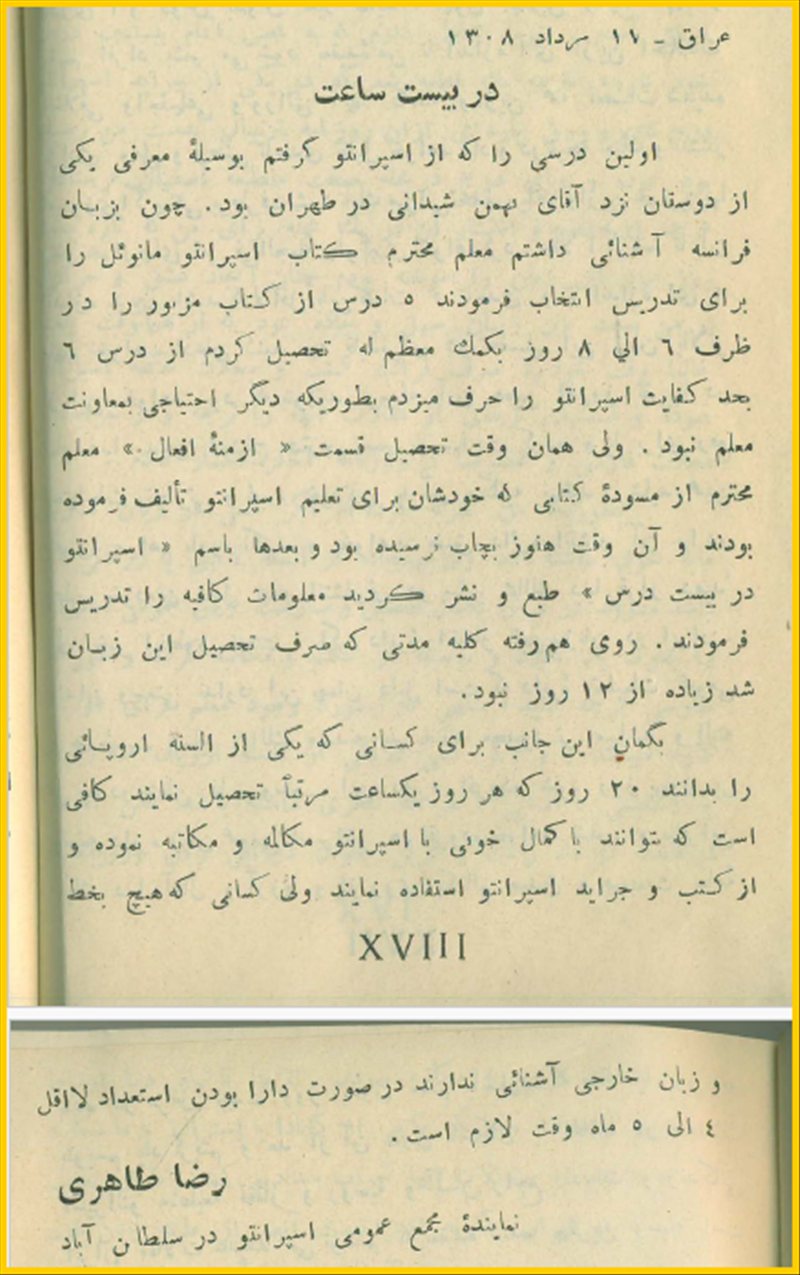 عراق ـ ١١ مرداد ١٣٠٨
در بیست ساعت
اولین درسی را که از اسپرانتو گرفتم بوسیلهٔ معرفی یکی
از دوستان نزد آقای بهمن شیدانی در طهران بود . چون بزبان
فرانسه آشنائی داشتم معلم محترم کتاب اسپرانتو مانوئل را
برای تدریس انتخاب فرمودند ٥ درس از کتاب مزبور را در
ظرف ٦ الي ٨ روز بکمك معظم له تحصیل کردم از درس ٦
بحد کفایت اسپرانتو را حرف میزدم بطوریکه دیگر احتیاجی بمعاونت
معلم نبود . ولی همان وقت تحصیل قسمت « ازمنهٔ افعال » معلم
محترم از مسودهٔ کتابی که خودشان برای تعلیم اسپرانتو تألیف فرموده
بودند و آن وقت هنوز بچاب نرسیده بود و بعدها باسم « اسپرانتو
در بیست درس » طبع و نشر گردید معلومات کافیه را تدریس
فرمودند . روی همرفته کلیه مدتی که صرف تحصیل این زبان
شد زیاده از ١٢ روز نبود .
بگمان این جانب برای کسانی که یکی از السنه اروپائی
را بدانند ٢٠ روز که هر روز یکساعت مرتباً تحصیل نمایند کافی
است که بتوانند با کمال خوبی با اسپرانتو مکالمه و مکاتبه نموده و
از کتب و جراید اسپرانتو استفاده نمایند ولی کسانی که هیچ بخط
XVIII
و زبان خارجی آشنائی ندارند در صورت دارا بودن استعداد لااقل
٤ الی ٥ ماه وقت لازم است .
رضا طاهری
نمایندهٔ مجمع عمومی اسپرانتو در سلطان آباد